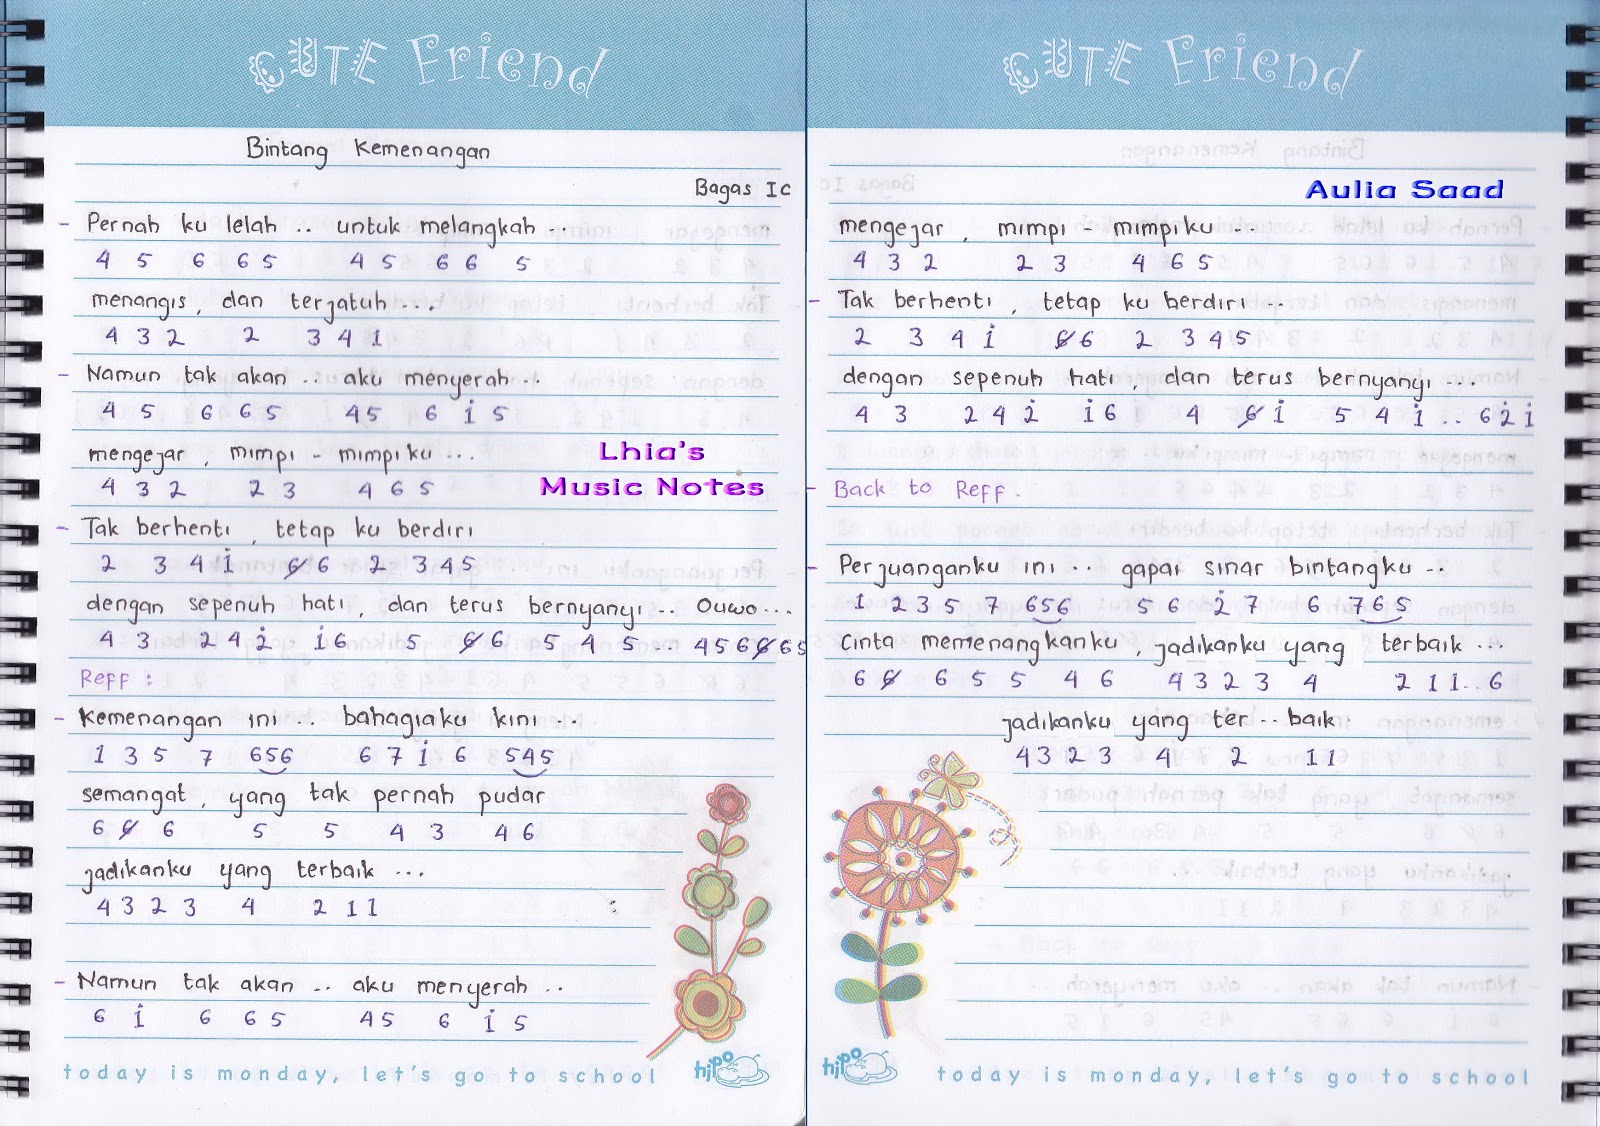 CUTE Friend
Bintang Kemenangan
Bagas Ic
- Pernah ku lelah .. untuk melangkah ...
4 5 6 6 5 4 5 6 6 5
menangis, dan terjatuh ...
4 3 2 2 3 4 1
- Namun tak akan .. aku menyerah ..
4 5 6 6 5 4 5 6 i 5
mengejar, mimpi - mimpiku ...
4 3 2 2 3 4 6 5
Lhia's
Music Notes
- Tak berhenti, tetap ku berdiri
2 3 4 i 6̸ 6 2 3 4 5
dengan sepenuh hati, dan terus bernyanyi .. Ouwo ...
4 3 2 4 2̇ i 6 5 6̸ 6 5 4 5 ... 4 5 6 6̸ 6 5
Reff :
- Kemenangan ini ... bahagiaku kini ...
1 3 5 7 656 6 7 i 6 545
semangat, yang tak pernah pudar
6 6̸ 6 5 5 4 3 4 6
jadikanku yang terbaik ...
4 3 2 3 4 2 1 1
- Namun tak akan .. aku menyerah ..
6 i 6 6 5 4 5 6 i 5
today is monday, let's go to school
hipo
CUTE Friend
Aulia Saad
mengejar, mimpi - mimpiku ...
4 3 2 2 3 4 6 5
- Tak berhenti, tetap ku berdiri ..
2 3 4 i 6̸ 6 2 3 4 5
dengan sepenuh hati, dan terus bernyanyi ...
4 3 2 4 2̇ i 6 4 6̸ i 5 4 i .. 6 2̇ i
- Back to Reff.
- Perjuanganku ini .. gapai sinar bintangku ..
1 2 3 5 7 656 5 6 2̇ 7 6 765
Cinta memenangkanku, jadikanku yang terbaik ...
6 6̸ 6 5 5 4 6 4 3 2 3 4 2 1 1 .. 6
jadikanku yang ter .. baik
4 3 2 3 4 2 1 1
hipo
today is monday, let's go to school